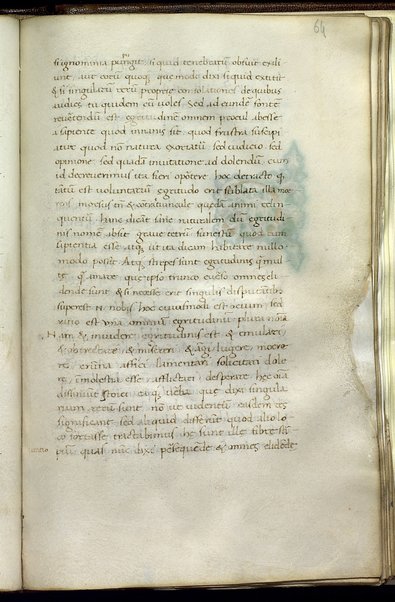 64
si ignominia pungit si quid tenebrarū obsuit exili
unt aut eorū quoq; que modo dixi si quid extitit
& si singularū rerū propriæ consolationes de quibus
audies tu quidem cū voles sed ad eundē fontē
revertendū est egritudinē omnem procul abesse
a sapiente quod inanis sit quod frustra suscipi
atur quod nō natura exoriatū sed iudicio sed
opinione sed quadā invitatione ad dolendum cum
id decreverimus ita fieri opōtere hoc detracto q
totū est voluntariū egritudo erit sublata illa moe
rens morsus tn̄ & quedā animi relin
quentur hanc dicāt sane naturalem dū egritudi
nis nomē absit grave tetrū funestū quod cum
sapientia esse atq; ut ita dicam habitare nullo
modo possit Atq; stirpes sunt egritudinis q̄ mul
te q̄ amare que ipso trunco everso omnes eli
dende sunt & si necesse erit singulis disputationib;
superest n̄ nobis hoc cuiusmodi est ocium sed
ratio est una omniū egritudinū plura nomina
Nam & invidere egritudinis est & emulari
& obtrectare & misereri & angi lugere moere
re erūna affici lamentari solicitari dole
re in molestia esse afflictari desperare hec oīa
diffiniunt stoici eaq; verba que dixi singula
rum rerū sunt nō ut videntur easdem res
significant sed aliquid differūt quod alio lo
co fortasse tractabimus he sunt ille fibre sti
piū quas dixi psequēde & omnes elidēde